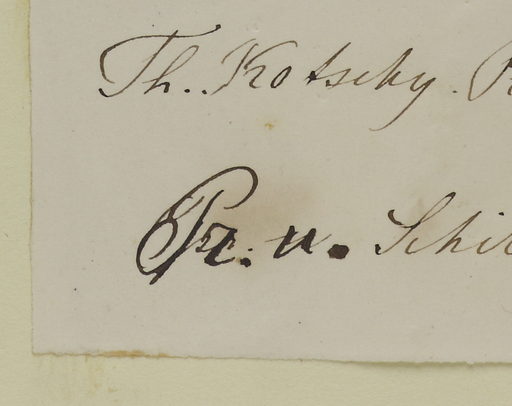 Th. Kotschy.
Pr. n. Schi